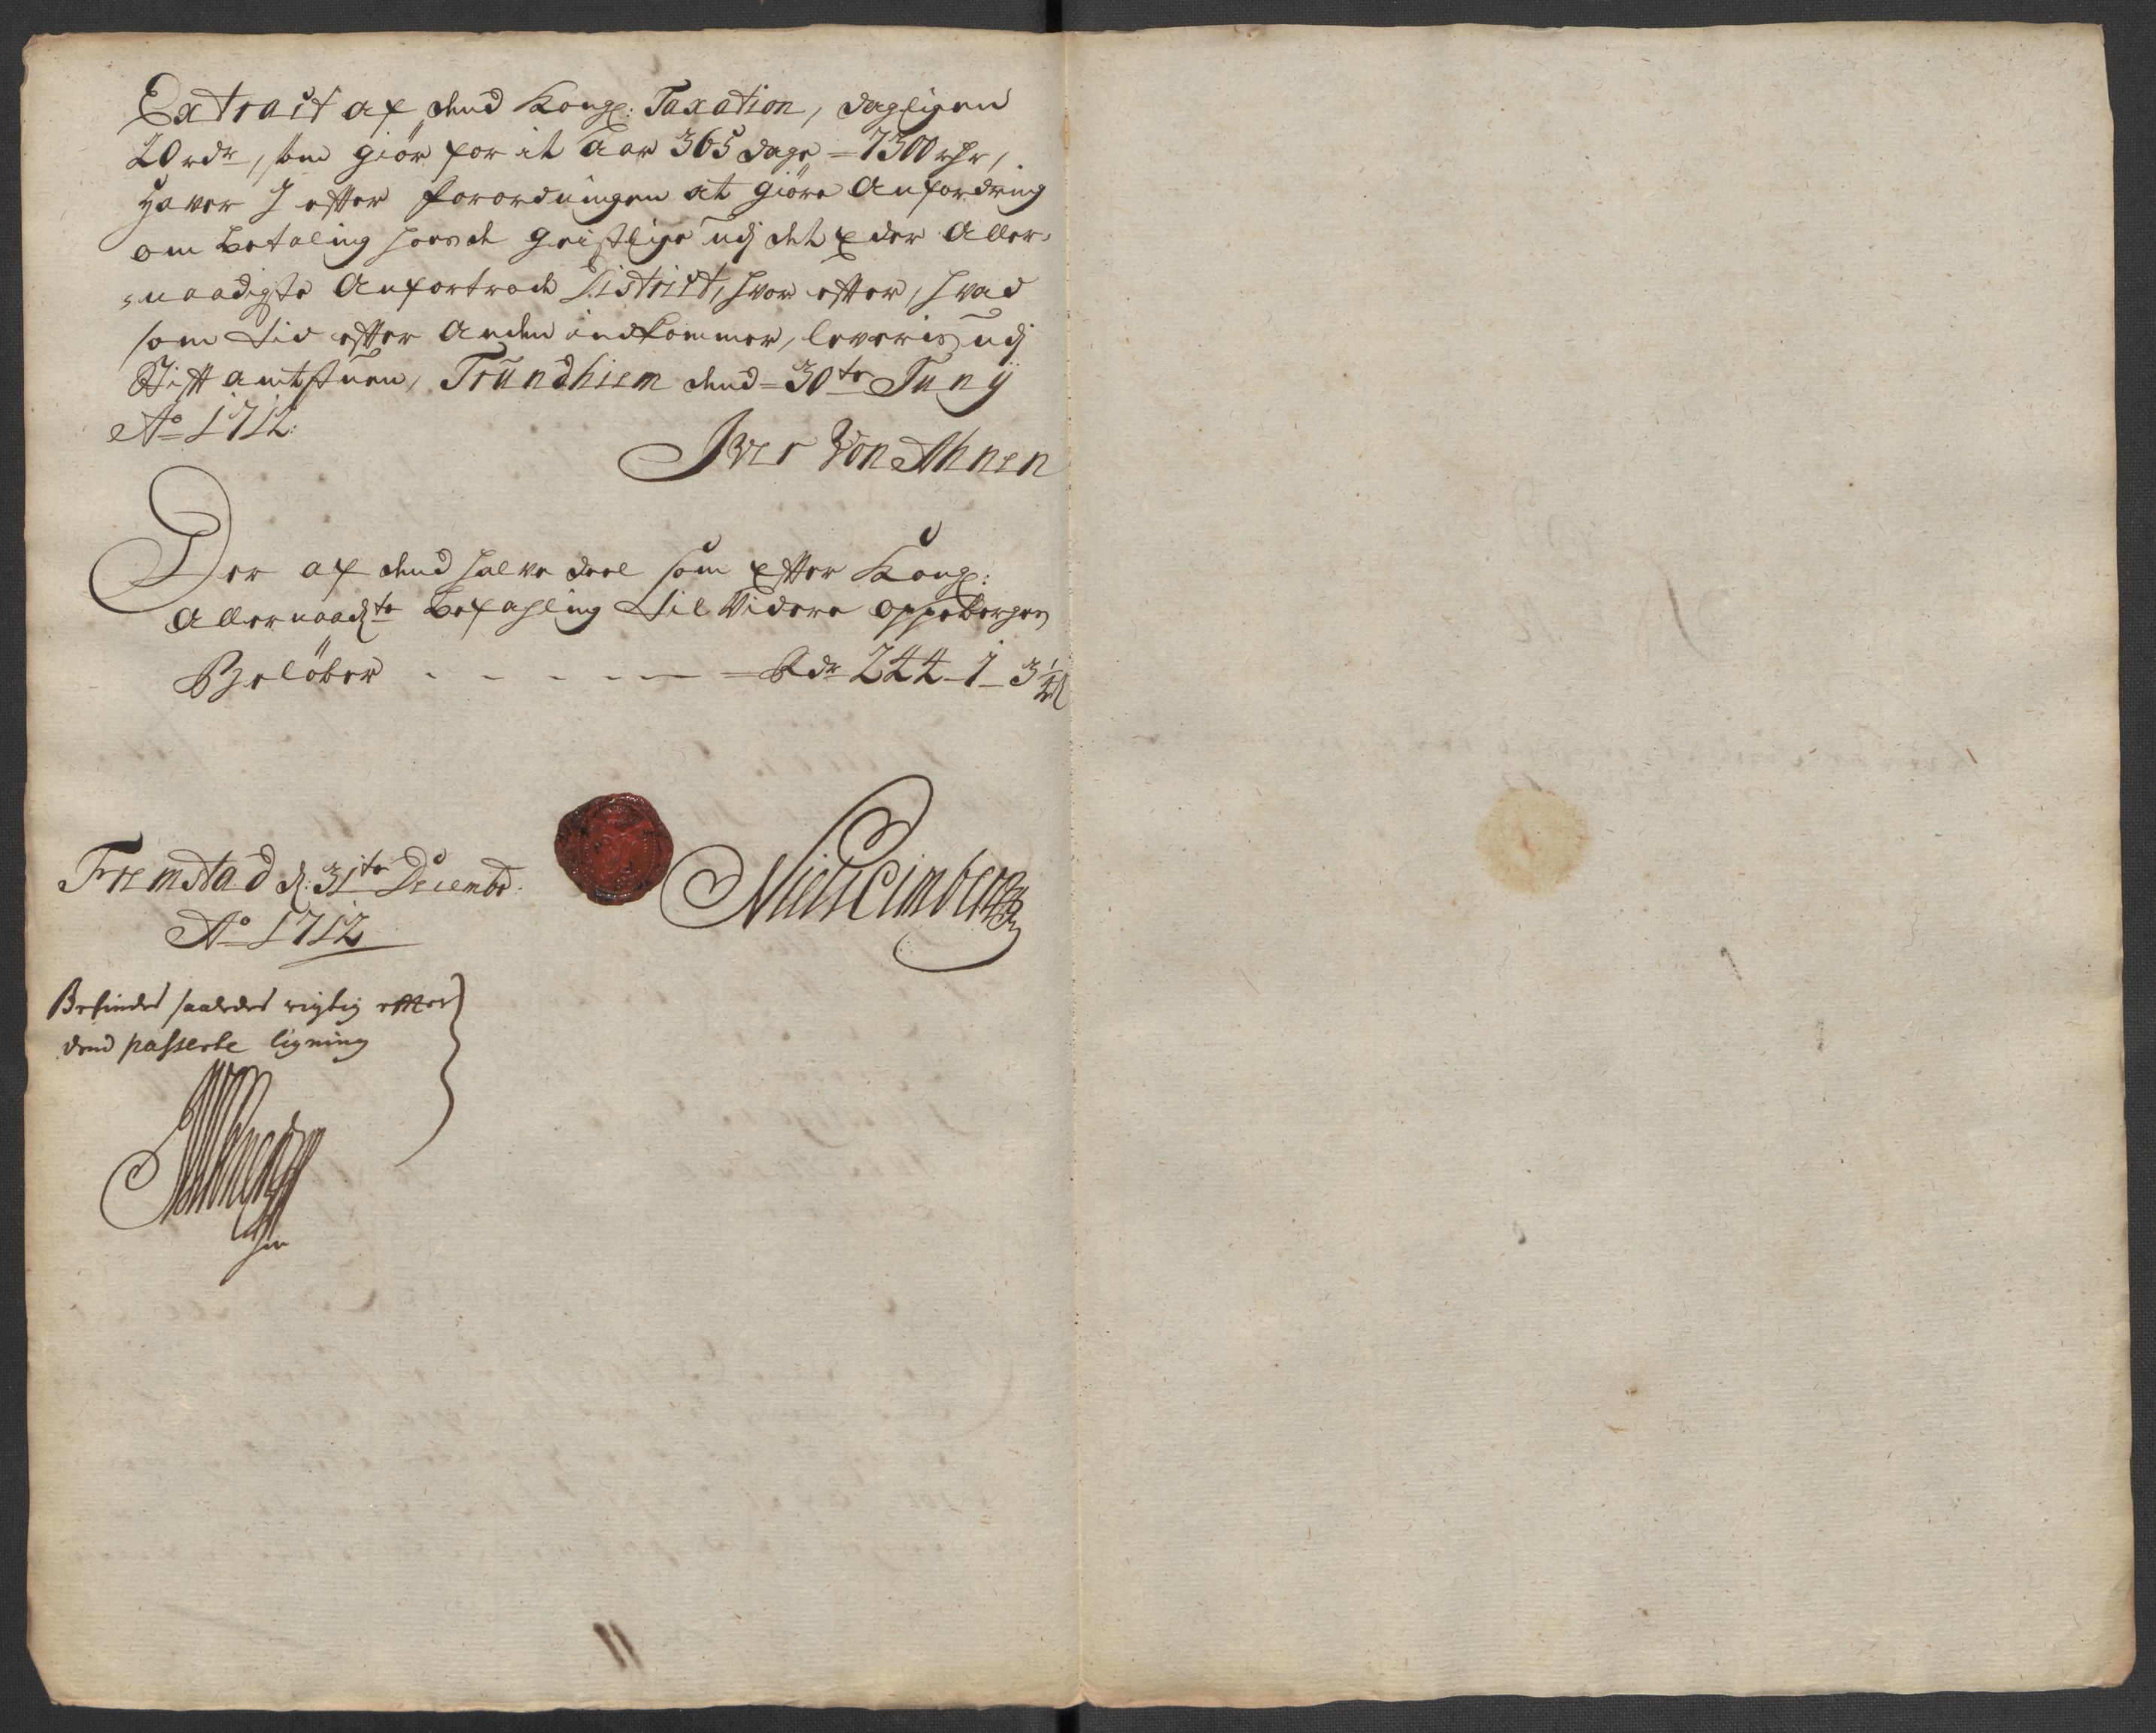 Extract af dend Kongl: Taxation, dagligen
20 rdr, som giör for it Aar 365 dage = 7300 rdr,
Haver I efter forordningen at giöre Anfordring
om betaling hoes de geistlige udj det Eder Aller-
naadigste Anfortrode District, hvor efter, hvad
som tid efter Anden indkommer, leveris udj
Stift amtstuen, Trundhiem dend = 30te Junij
Ao 1712:
Iver Von Ahnen
Der af dend halve deel som Efter Kongl:
Allernaadste befahling til Videre oppebergen
Belöber - - - - - - Rdr 244 - 1 - 3 1/4 s
Fremstad d: 31te Decembr:
Ao 1712
Befindes saaledes rigtig efter
dend passerte ligning